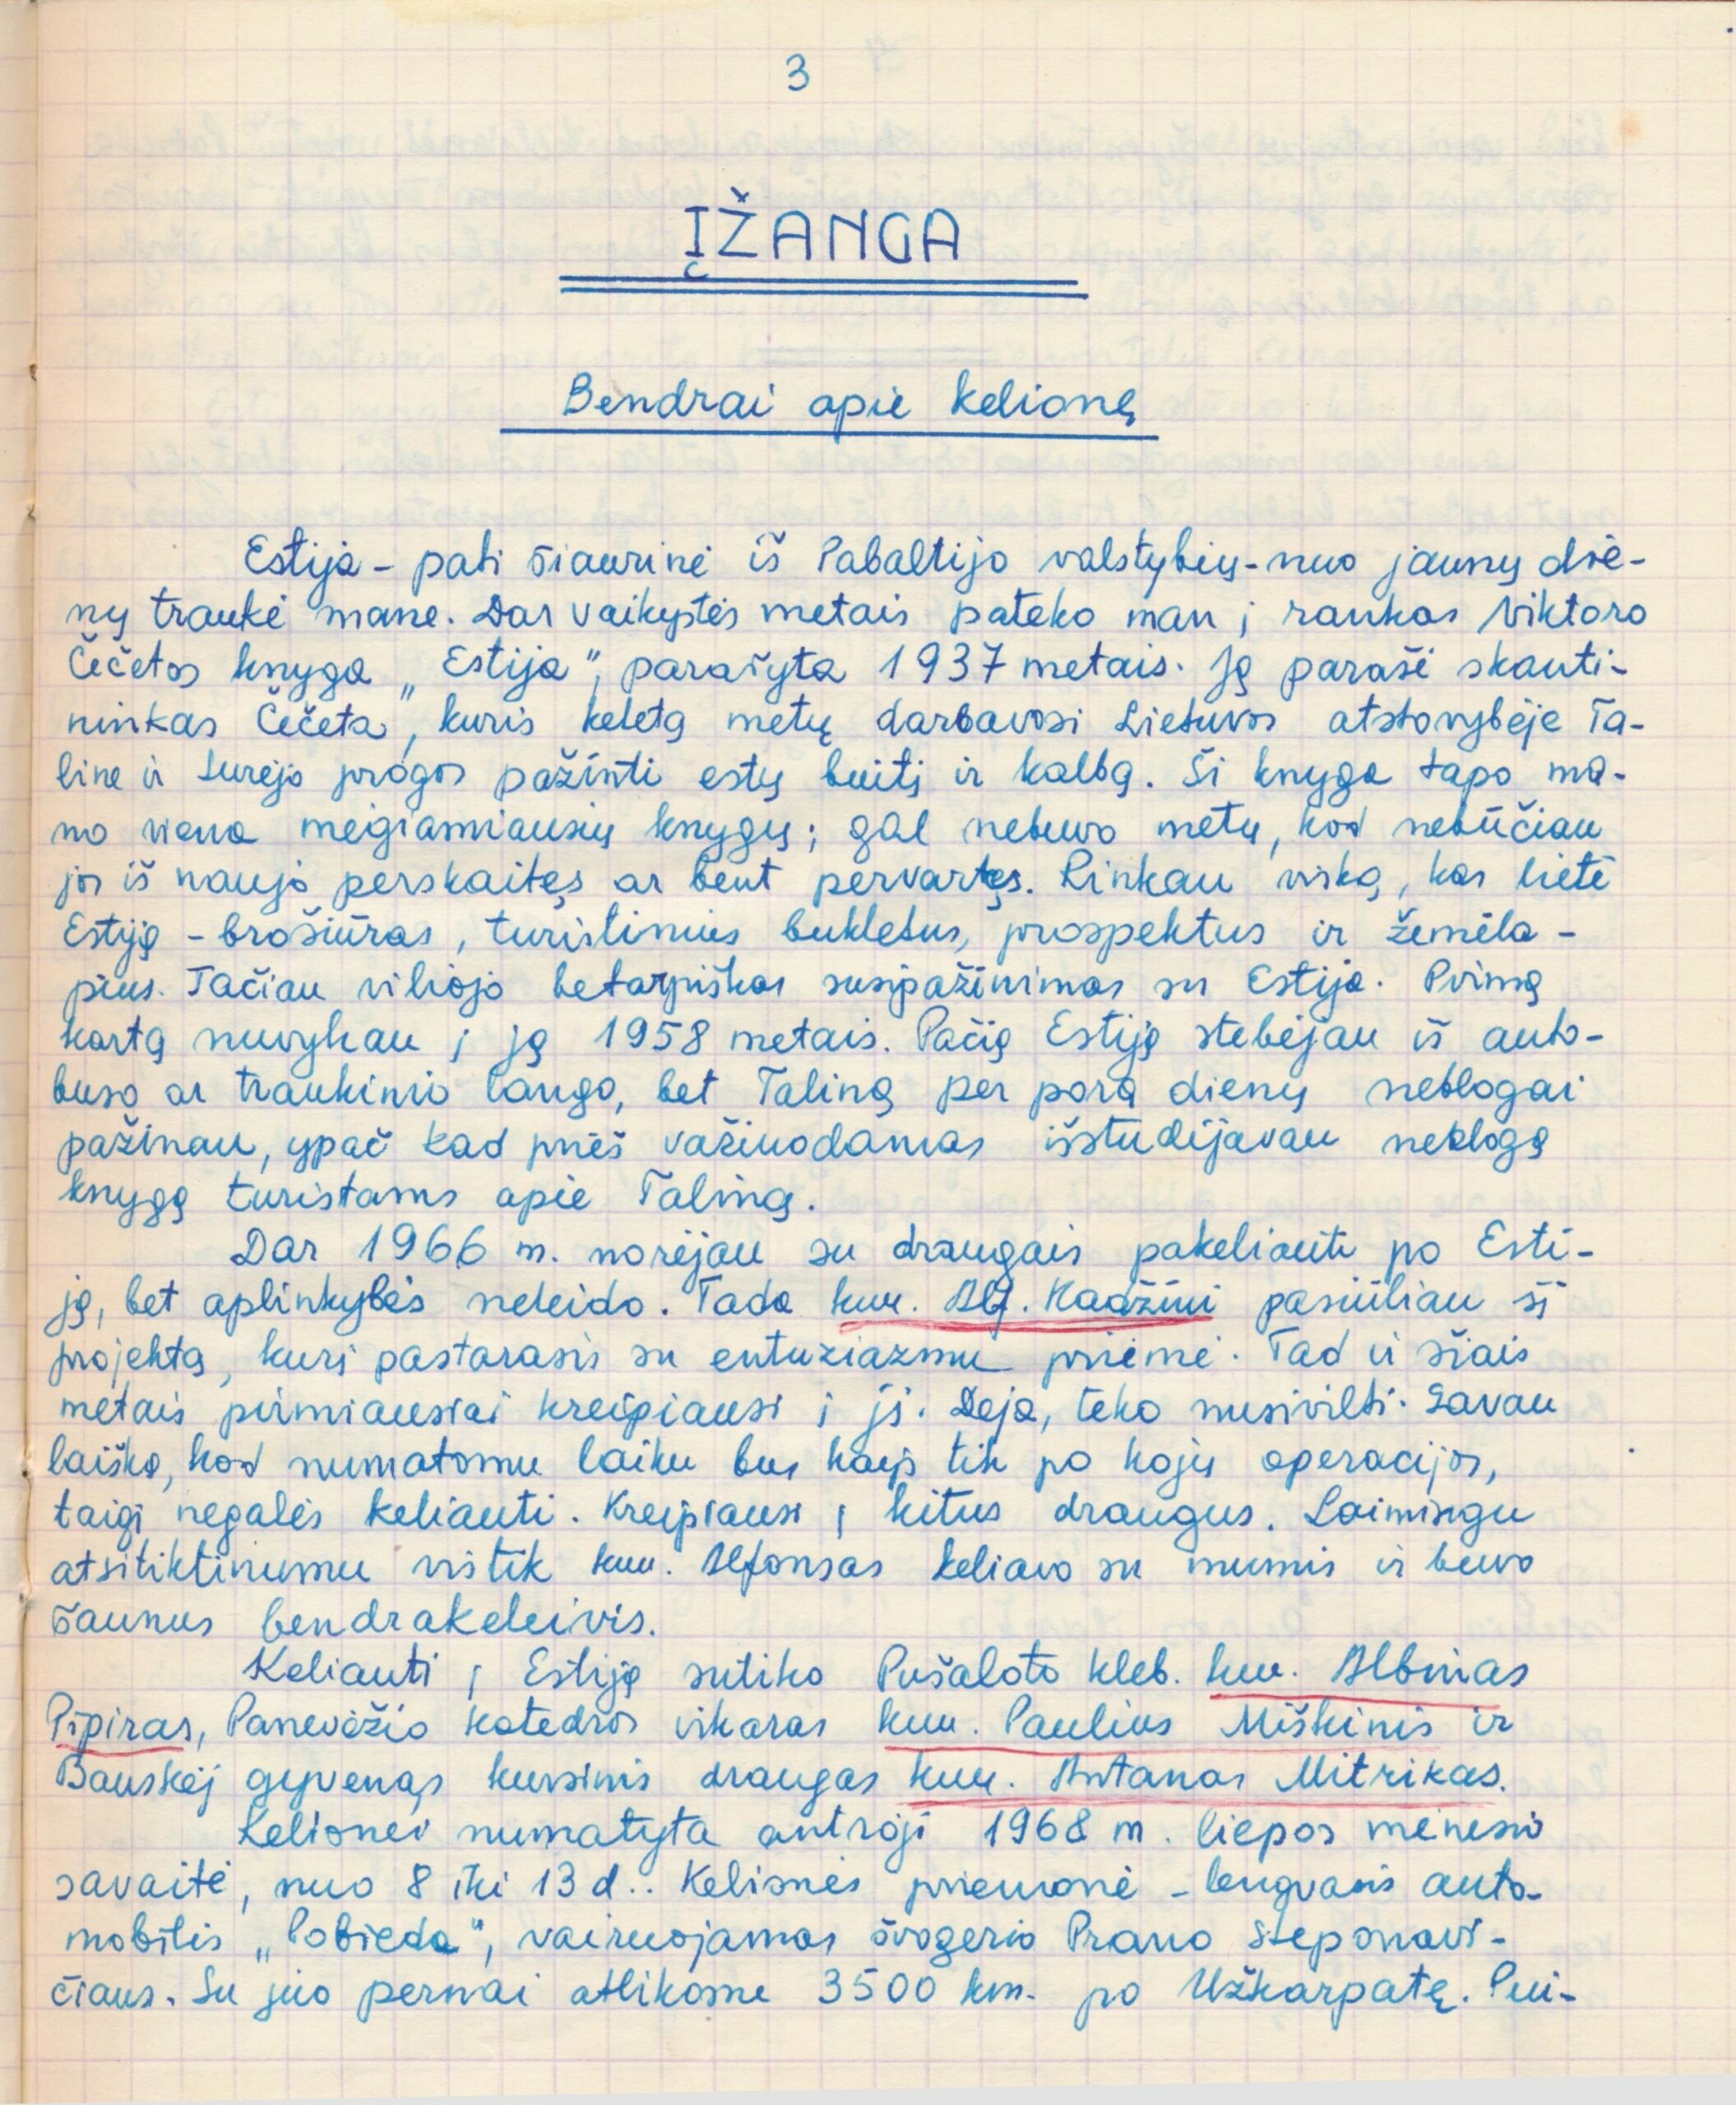 3
ĮŽANGA
Bendrai apie kelionę
Estija - pati šiaurinė iš Pabaltijo valstybių - nuo jaunų die-
nų traukė mane. Dar vaikystės metais pateko man į rankas Viktoro
Čečetos knyga „Estija", parašyta 1937 metais. Ją parašė skauti-
ninkas Čečeta, kuris keletą metų darbavosi Lietuvos atstovybėje Ta-
line ir turėjo progos pažinti estų buitį ir kalbą. Ši knyga tapo ma-
no viena mėgiamiausių knygų; gal nebuvo metų, kad nebūčiau
jos iš naujo perskaitęs ar bent pervartęs. Rinkau viską, kas lietė
Estiją - brošiūras, turistinius bukletus, prospektus ir žemėla-
pius. Tačiau viliojo betarpiškas susipažinimas su Estija. Pirmą
kartą nuvykau į ją 1958 metais. Pačią Estiją stebėjau iš auto-
buso ar traukinio lango, bet Taliną per porą dienų neblogai
pažinau, ypač kad prieš važiuodamas išstudijavau neblogą
knygą turistams apie Taliną.
Dar 1966 m. norėjau su draugais pakeliauti po Esti-
ją, bet aplinkybės neleido. Tada kun. Alf. Kadžiui pasiūliau šį
projektą, kurį pastarasis su entuziazmu priėmė. Tad ir šiais
metais pirmiausiai kreipiausi į jį. Deja, teko nusivilti. Gavau
laišką, kad numatomu laiku bus kaip tik po kojų operacijos,
taigi negalės keliauti. Kreipiausi į kitus draugus. Laimingu
atsitiktinumu vistik kun. Alfonsas keliavo su mumis ir buvo
šaunus bendrakeleivis.
Keliauti į Estiją sutiko Pušaloto kleb. kun. Albinas
Pipiras, Panevėžio katedros vikaras kun. Paulius Miškinis ir
Bauskėj gyvenąs kursinis draugas kun. Antanas Mitrikas.
Kelionei numatyta antroji 1968 m. liepos mėnesio
savaitė, nuo 8 iki 13 d.. Kelionės priemonė - lengvasis auto-
mobilis „Pobieda", vairuojamas švogerio Prano Steponavi-
čiaus. Su juo pernai atlikome 3500 km. po Užkarpatę. Pui-